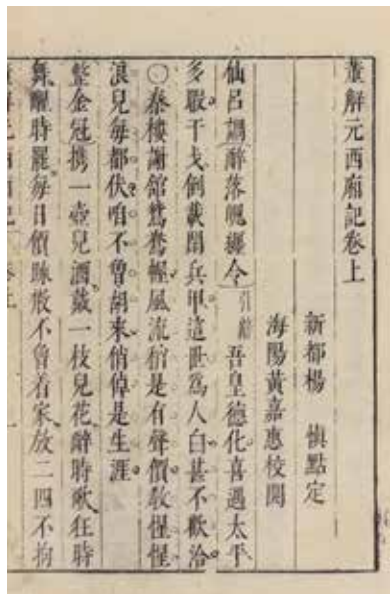 董解元西廂記卷上
新都楊　慎點定
海陽黃嘉惠校閱
仙呂調醉落魄纏令引辭吾皇德化喜遇太平
多暇干戈倒載閒兵甲這世爲人白甚不歡洽
〇秦樓謝館鴛鴦幄風流稍是有聲價教惺惺
浪兒每都伏咱不曾胡來俏倬是生涯
整金冠携一壺兒酒戴一枝兒花醉時歌狂時
舞醒時罷每日價踈散不曾着家放二四不拘